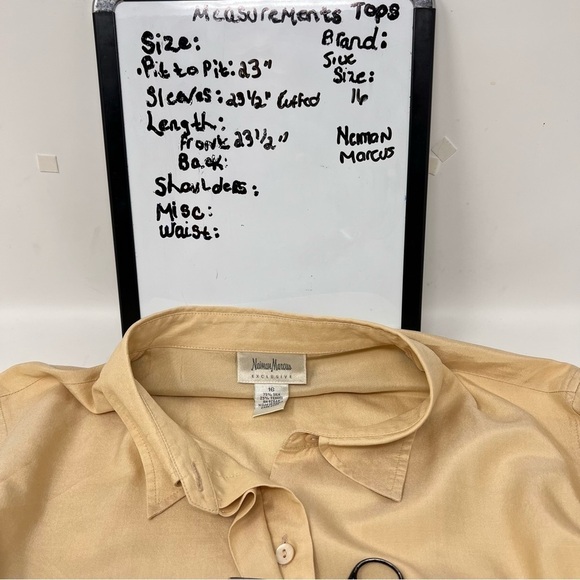 Measurements Tops
Size:
Pit to Pit: 23"
Sleeves: 23½" Cuffed
Length:
Front: 23 1/2"
Back:
Shoulders:
Misc:
Waist:
Brand:
Size:
16
Neiman
Marcus
Neiman Marcus
EXCLUSIVE
16